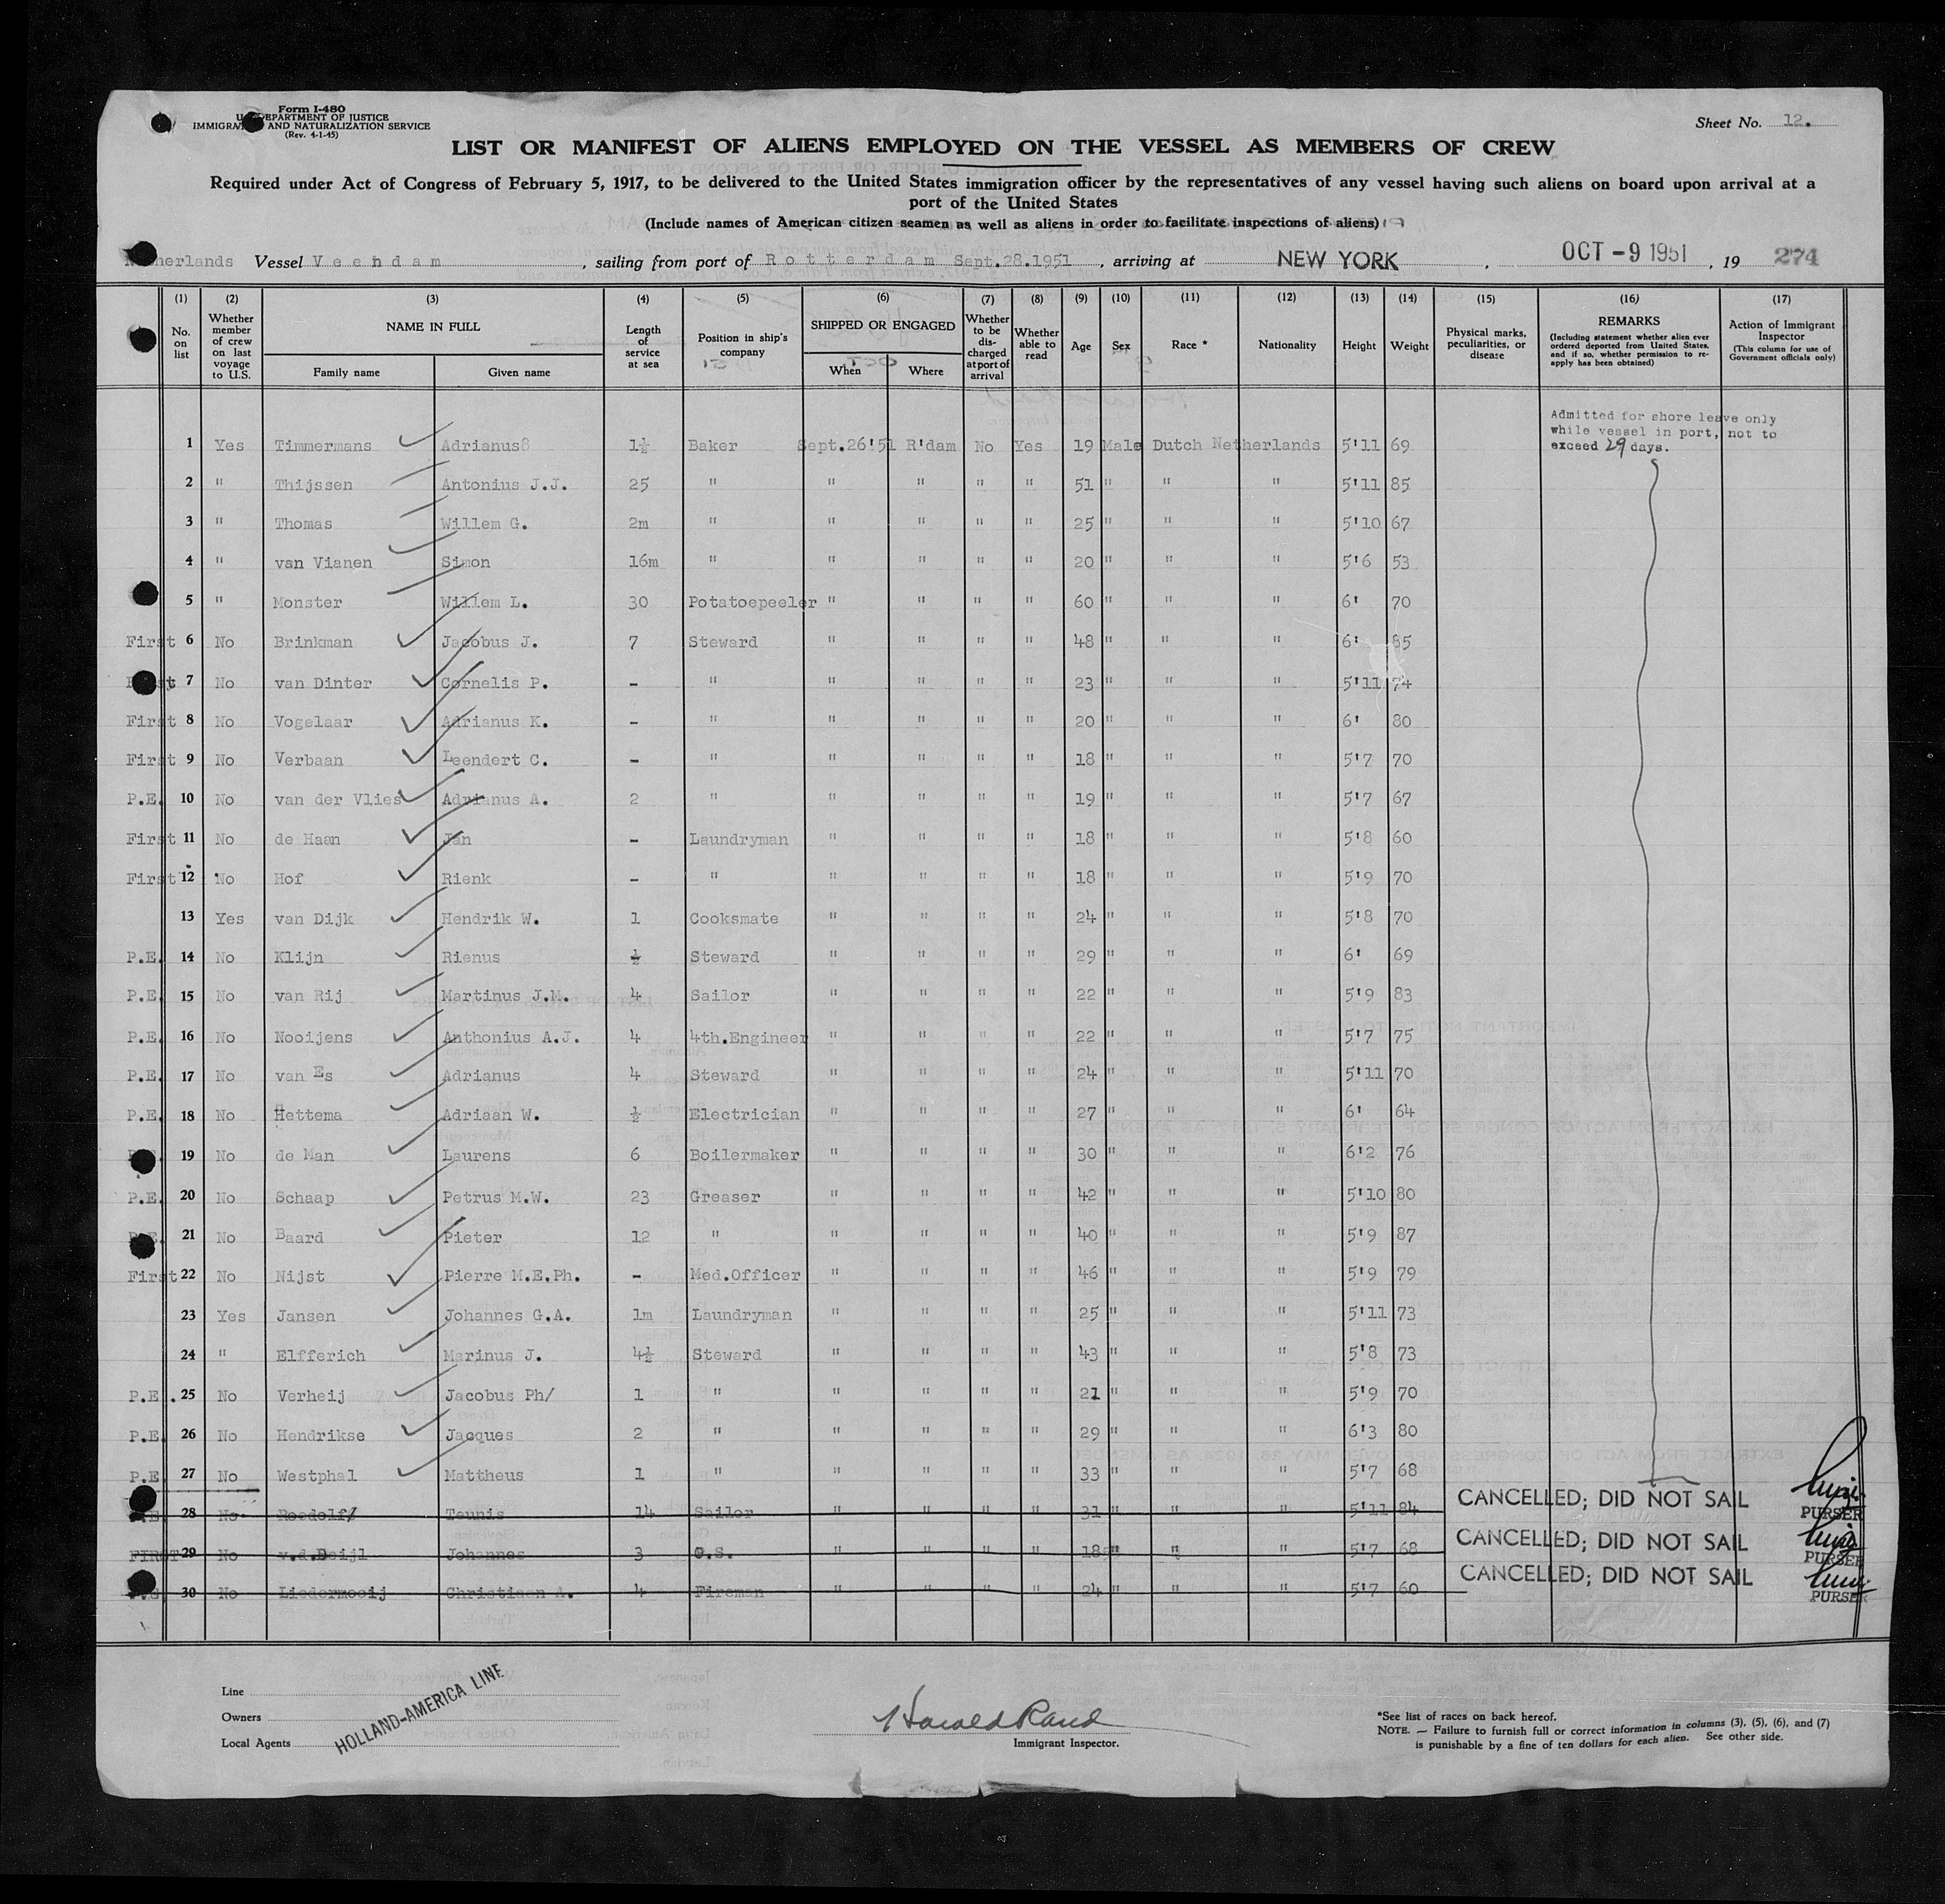 Form I-480
U. S. DEPARTMENT OF JUSTICE
IMMIGRATION AND NATURALIZATION SERVICE
(Rev. 4-1-45)
Sheet No. 12.
LIST OR MANIFEST OF ALIENS EMPLOYED ON THE VESSEL AS MEMBERS OF CREW
Required under Act of Congress of February 5, 1917, to be delivered to the United States immigration officer by the representatives of any vessel having such aliens on board upon arrival at a
port of the United States
(Include names of American citizen seamen as well as aliens in order to facilitate inspections of aliens)
Netherlands Vessel Veendam, sailing from port of Rotterdam Sept.28.1951, arriving at NEW YORK, OCT -9 1951, 19 274
(1) No. on list (2) Whether member of crew on last voyage to U.S. (3) NAME IN FULL Family name Given name (4) Length of service at sea (5) Position in ship's company (6) SHIPPED OR ENGAGED When Where (7) Whether to be discharged at port of arrival (8) Whether able to read (9) Age (10) Sex (11) Race * (12) Nationality (13) Height (14) Weight (15) Physical marks, peculiarities, or disease (16) REMARKS (Including statement whether alien ever ordered deported from United States, and if so, whether permission to reapply has been obtained) (17) Action of Immigrant Inspector (This column for use of Government officials only)
Admitted for shore leave only
while vessel in port, not to
exceed 29 days.
1 Yes Timmermans Adrianus8 1½ Baker Sept.26'51 R'dam No Yes 19 Male Dutch Netherlands 5'11 69
2 " Thijssen Antonius J.J. 25 " " " " " 51 " " " 5'11 85
3 " Thomas Willem G. 2m " " " " " 25 " " " 5'10 67
4 " van Vianen Simon 16m " " " " " 20 " " " 5'6 53
5 " Monster Willem L. 30 Potatoepeeler " " " " 60 " " " 6' 70
First 6 No Brinkman Jacobus J. 7 Steward " " " " 48 " " " 6' 85
First 7 No van Dinter Cornelis P. - " " " " " 23 " " " 5'11 74
First 8 No Vogelaar Adrianus K. - " " " " " 20 " " " 6' 80
First 9 No Verbaan Leendert C. - " " " " " 18 " " " 5'7 70
P.E. 10 No van der Vlies Adrianus A. 2 " " " " " 19 " " " 5'7 67
First 11 No de Haan Jan - Laundryman " " " " 18 " " " 5'8 60
First 12 No Hof Rienk - " " " " " 18 " " " 5'9 70
13 Yes van Dijk Hendrik W. 1 Cooksmate " " " " 24 " " " 5'8 70
P.E. 14 No Klijn Rienus ½ Steward " " " " 29 " " " 6' 69
P.E. 15 No van Rij Martinus J.M. 4 Sailor " " " " 22 " " " 5'9 83
P.E. 16 No Nooijens Anthonius A.J. 4 4th.Engineer " " " " 22 " " " 5'7 75
P.E. 17 No van Es Adrianus 4 Steward " " " " 24 " " " 5'11 70
P.E. 18 No Hettema Adriaan W. ½ Electrician " " " " 27 " " " 6' 64
19 No de Man Laurens 6 Boilermaker " " " " 30 " " " 6'2 76
P.E. 20 No Schaap Petrus M.W. 23 Greaser " " " " 42 " " " 5'10 80
P.E. 21 No Baard Pieter 12 " " " " " 40 " " " 5'9 87
First 22 No Nijst Pierre M.E.Ph. - Med.Officer " " " " 46 " " " 5'9 79
23 Yes Jansen Johannes G.A. 1m Laundryman " " " " 25 " " " 5'11 73
24 " Elfferich Marinus J. 4½ Steward " " " " 43 " " " 5'8 73
P.E. 25 No Verheij Jacobus Ph/ 1 " " " " " 21 " " " 5'9 70
P.E. 26 No Hendrikse Jacques 2 " " " " " 29 " " " 6'3 80
P.E. 27 No Westphal Mattheus 1 " " " " " 33 " " " 5'7 68
P.E. 28 No Roedolf/ Teunis 14 Sailor " " " " 31 " " " 5'11 84 CANCELLED; DID NOT SAIL PURSER
FIRST 29 No v.d.Deijl Johannes 3 O.S. " " " " 18 " " " 5'7 68 CANCELLED; DID NOT SAIL PURSER
P.E. 30 No Liedermooij Christiaan A. 4 Fireman " " " " 24 " " " 5'7 60 CANCELLED; DID NOT SAIL PURSER
Line
Owners
Local Agents
HOLLAND-AMERICA LINE
Harold Rand
Immigrant Inspector.
*See list of races on back hereof.
NOTE. — Failure to furnish full or correct information in columns (3), (5), (6), and (7)
is punishable by a fine of ten dollars for each alien. See other side.